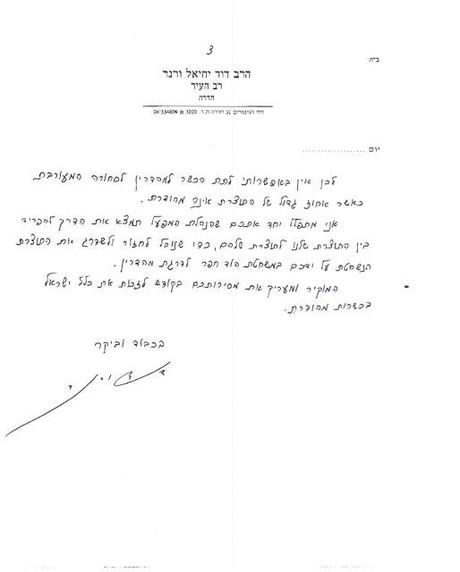 3
ב"ה
הרב דוד יחיאל ורנר
רב העיר
חדרה
רח' הגיבורים 31 חדרה ת.ד. 3020 04/334804
יום ....................
לכן אין באפשרותי לתת הכשר למהדרין לסחורה המעורבת
כאשר אחוז גדול של התוצרת אינה מהודרת.
אני מתפלל יחד אתכם שהנהלת המפעל תמצא את הדרך להפריד
בין התוצרת שלנו לתוצרת שלהם, כדי שנוכל לחזור ולשדרג את התוצרת
הנשחטת על ידכם במשחטת הוד חפר לדרגת מהדרין.
המוקיר ומעריך את מסירותכם בקודש לזכות את כלל ישראל
בכשרות מהודרת.
בכבוד וביקר